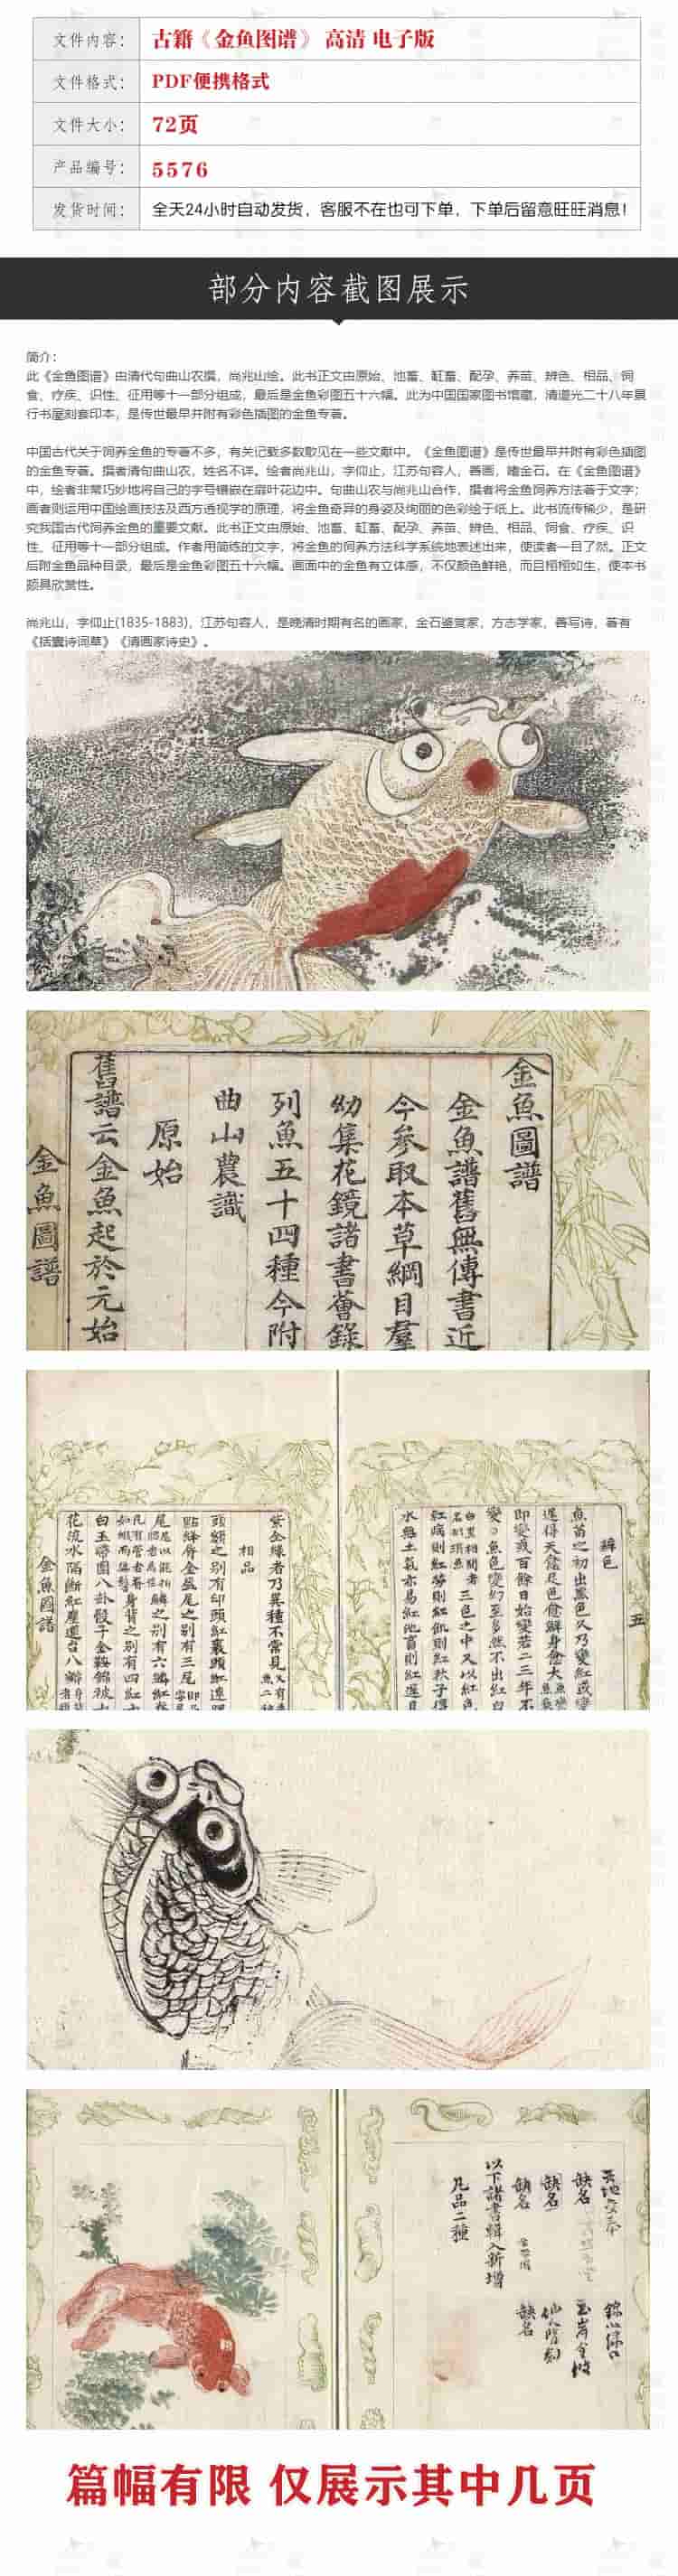 文件内容： 古籍《金鱼图谱》 高清 电子版
文件格式： PDF便携格式
文件大小： 72页
产品编号： 5576
发货时间： 全天24小时自动发货，客服不在也可下单，下单后留意旺旺消息！
部分内容截图展示
简介：
此《金鱼图谱》由清代句曲山农撰，尚兆山绘。此书正文由原始、池畜、缸畜、配孕、养苗、辨色、相品、饲
食、疗疾、识性、征用等十一部分组成，最后是金鱼彩图五十六幅。此为中国国家图书馆藏，清道光二十八年景
行书屋刻套印本，是传世最早并附有彩色插图的金鱼专著。
中国古代关于饲养金鱼的专著不多，有关记载多数散见在一些文献中。《金鱼图谱》是传世最早并附有彩色插图
的金鱼专著。撰者清句曲山农，姓名不详。绘者尚兆山，字仰止，江苏句容人，善画，嗜金石。在《金鱼图谱》
中，绘者非常巧妙地将自己的字号镶嵌在扉叶花边中。句曲山农与尚兆山合作，撰者将金鱼饲养方法著于文字；
画者则运用中国绘画技法及西方透视学的原理，将金鱼奇异的身姿及绚丽的色彩绘于纸上。此书流传稀少，是研
究我国古代饲养金鱼的重要文献。此书正文由原始、池畜、缸畜、配孕、养苗、辨色、相品、饲食、疗疾、识
性、征用等十一部分组成。作者用简练的文字，将金鱼的饲养方法科学系统地表述出来，使读者一目了然。正文
后附金鱼品种目录，最后是金鱼彩图五十六幅。画面中的金鱼有立体感，不仅颜色鲜艳，而且栩栩如生，使本书
颇具欣赏性。
尚兆山，字仰止(1835-1883)，江苏句容人，是晚清时期有名的画家，金石鉴赏家，方志学家，善写诗，著有
《括囊诗词草》《清画家诗史》。
金魚圖譜
金魚譜舊無傳書近
今參取本草綱目羣
幼集花鏡諸書薈錄
列魚五十四種今附
曲山農識
原始
舊譜云金魚起於元始
金魚圖譜
辨色
五
魚苗之初出黑色又乃變紅或變
即變或百餘日始變若二三年不
變○魚色變幻至多然不出紅白
三色之中又以紅色
水無土氣亦易紅
紫金緣者乃異種不常見
相品
頭額之別有印頭紅裹頭紅連
點絳唇金盔尾之別有三尾
鱗之別有六鱗紅
身背之別有四紅十
白玉帶圍八卦骰子金鞍錦被
花流水隔斷紅塵蓮台八瓣
金魚圖譜
缺名
缺名
缺名
缺名
以下諸書輯入新增
凡品二種
篇幅有限 仅展示其中几页